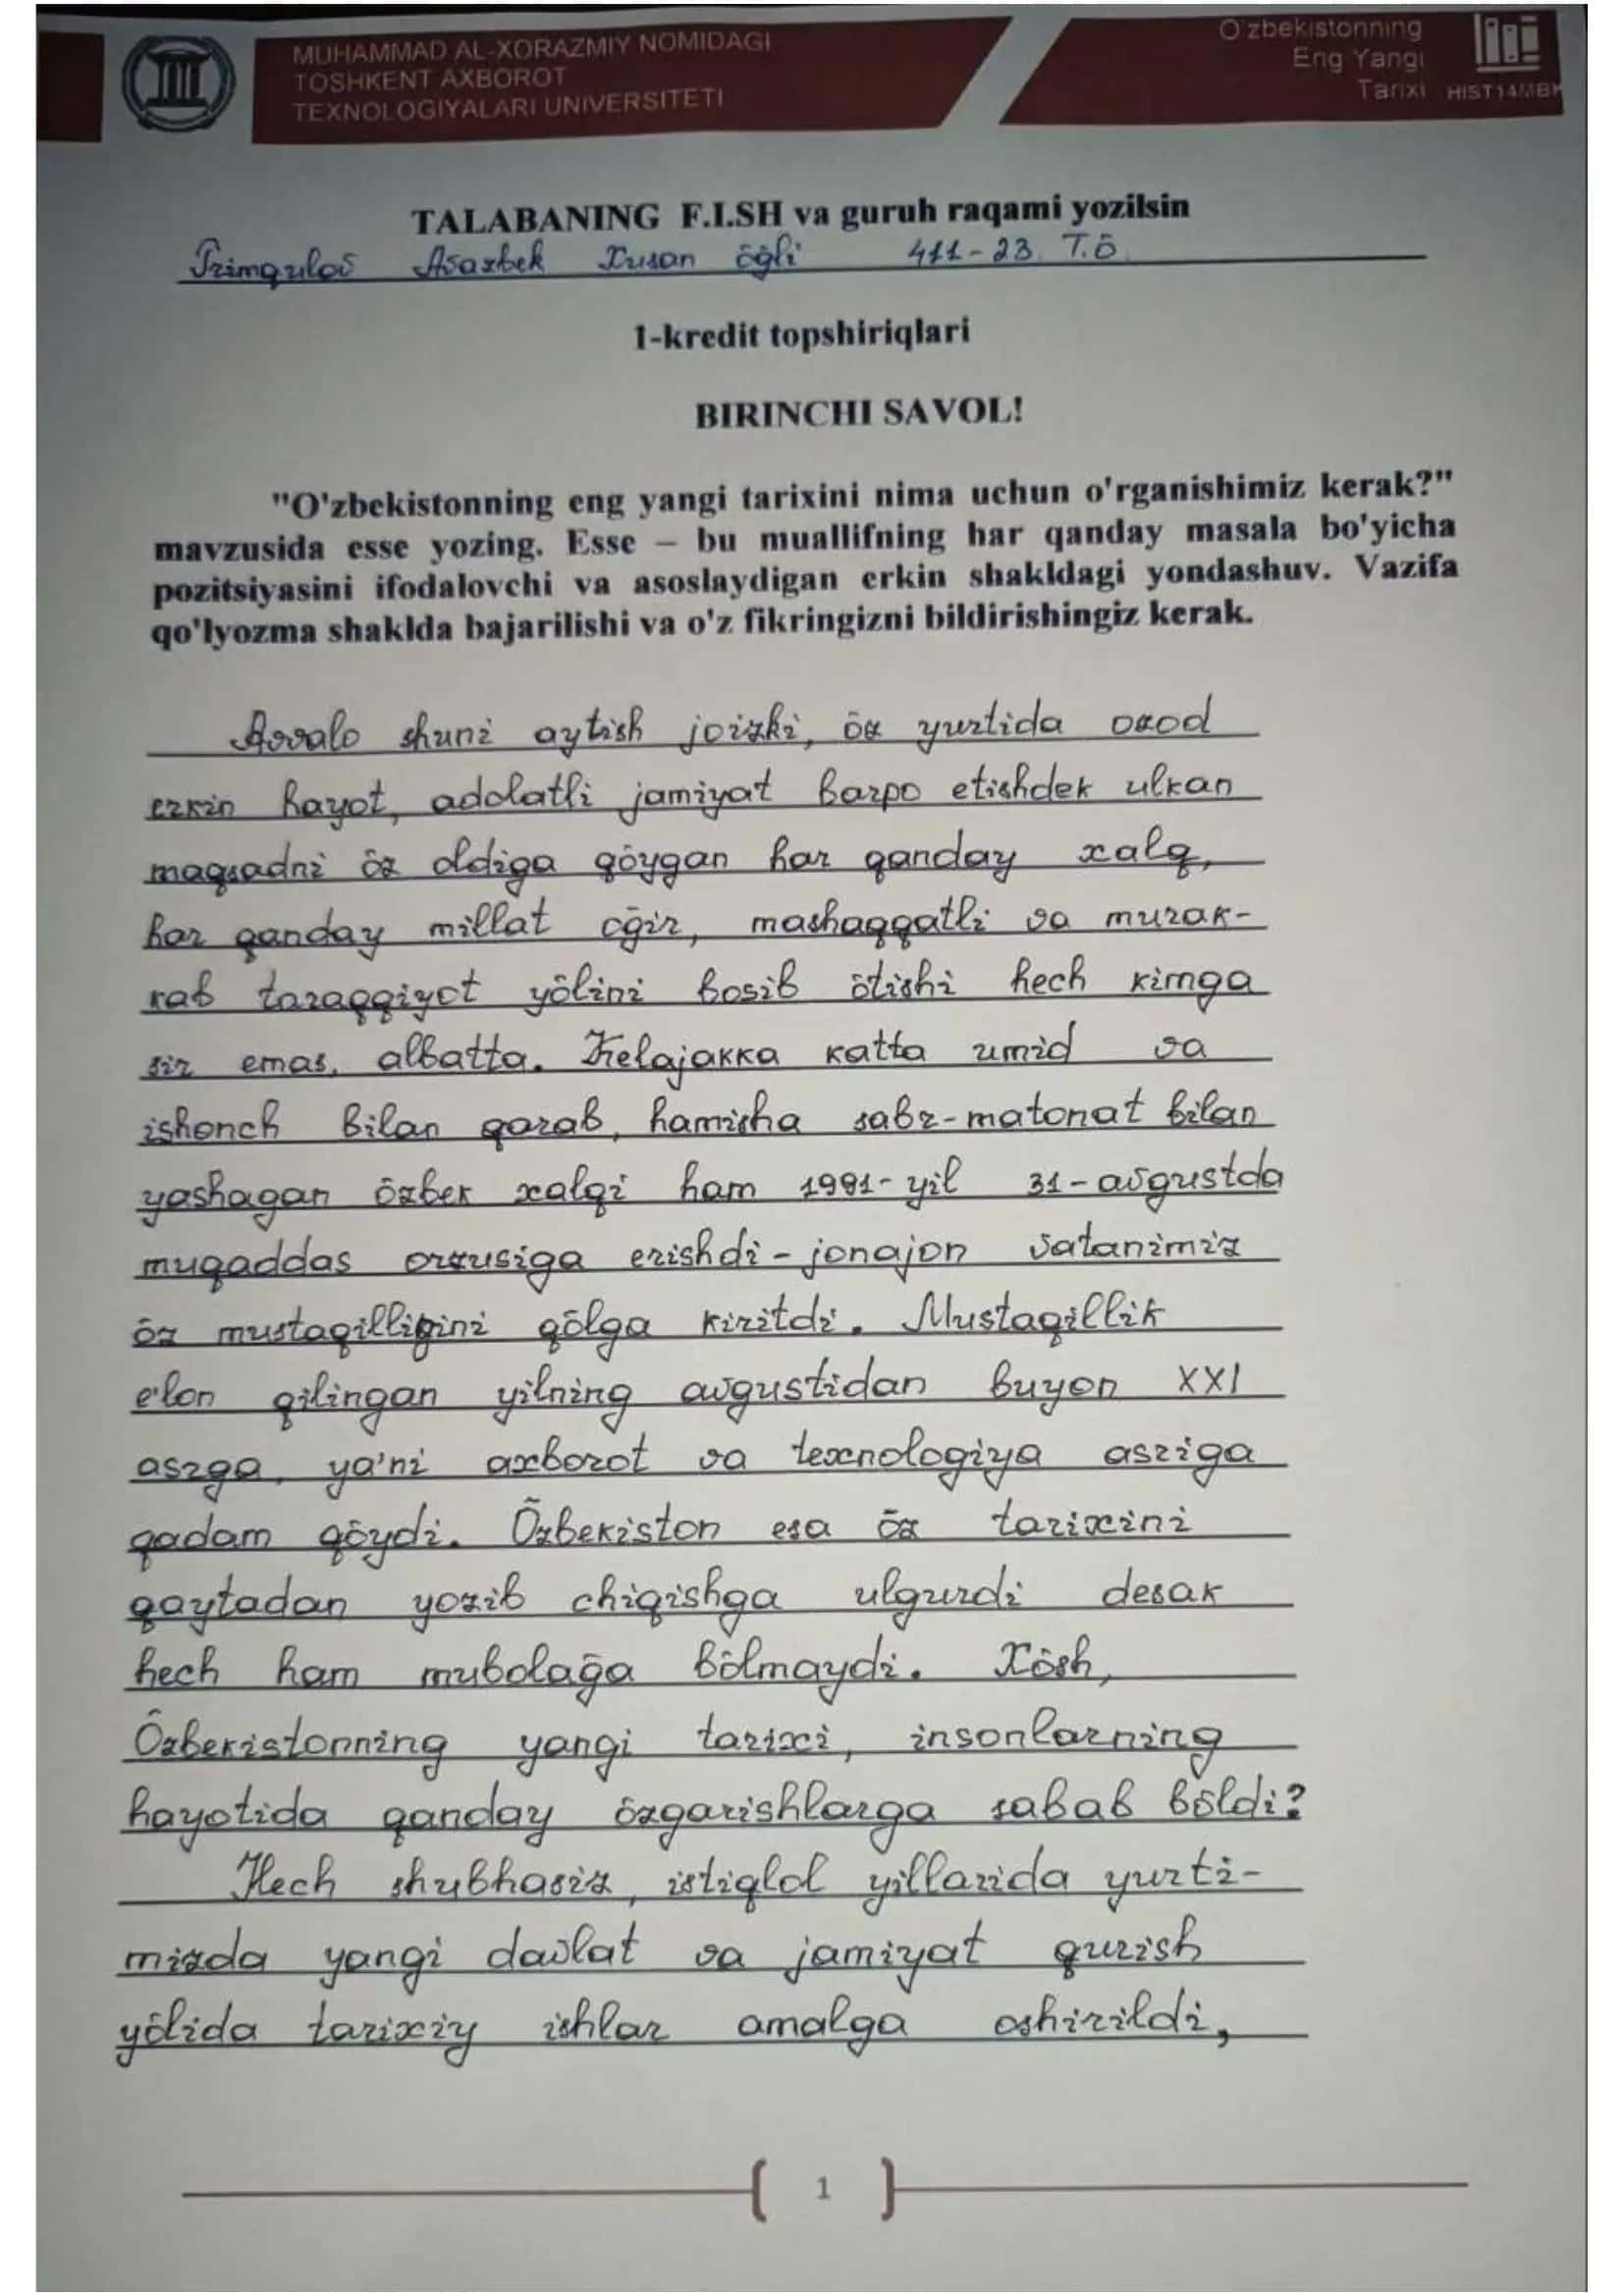 MUHAMMAD AL-XORAZMIY NOMIDAGI
TOSHKENT AXBOROT
TEXNOLOGIYALARI UNIVERSITETI
O'zbekistonning
Eng Yangi
Tarixi HIST14MBK
TALABANING F.I.SH va guruh raqami yozilsin
Asaxbek Xusan ōğli 411-23 T.Ō
1-kredit topshiriqlari
BIRINCHI SAVOL!
"O'zbekistonning eng yangi tarixini nima uchun o'rganishimiz kerak?"
mavzusida esse yozing. Esse – bu muallifning har qanday masala bo'yicha
pozitsiyasini ifodalovchi va asoslaydigan erkin shakldagi yondashuv. Vazifa
qo'lyozma shaklda bajarilishi va o'z fikringizni bildirishingiz kerak.
Avvalo shuni aytish joizki, ōz yurtida ozod
erkin hayot, adolatli jamiyat barpo etishdek ulkan
maqsadni ōz oldiga qōygan har qanday xalq,
har qanday millat oğir, mashaqqatli va murak-
kab taraqqiyot yōlini bosib ōtishi hech kimga
sir emas, albatta. Kelajakka katta umid va
ishonch bilan qarab, hamisha sabr-matonat bilan
yashagan ōzbek xalqi ham 1991-yil 31-avgustda
muqaddas orzusiga erishdi - jonajon vatanimiz
ōz mustaqilligini qōlga kiritdi. Mustaqillik
e'lon qilingan yilning avgustidan buyon XXI
asrga, ya'ni axborot va texnologiya asriga
qadam qōydi. Ōzbekiston esa ōz tarixini
qaytadan yozib chiqishga ulgurdi desak
hech ham mubolağa bōlmaydi. Xōsh,
Ōzbekistonning yangi tarixi, insonlarning
hayotida qanday ōzgarishlarga sabab bōldi?
Hech shubhasiz, istiqlol yillarida yurti-
mizda yangi davlat va jamiyat qurish
yōlida tarixiy ishlar amalga oshirildi,
1